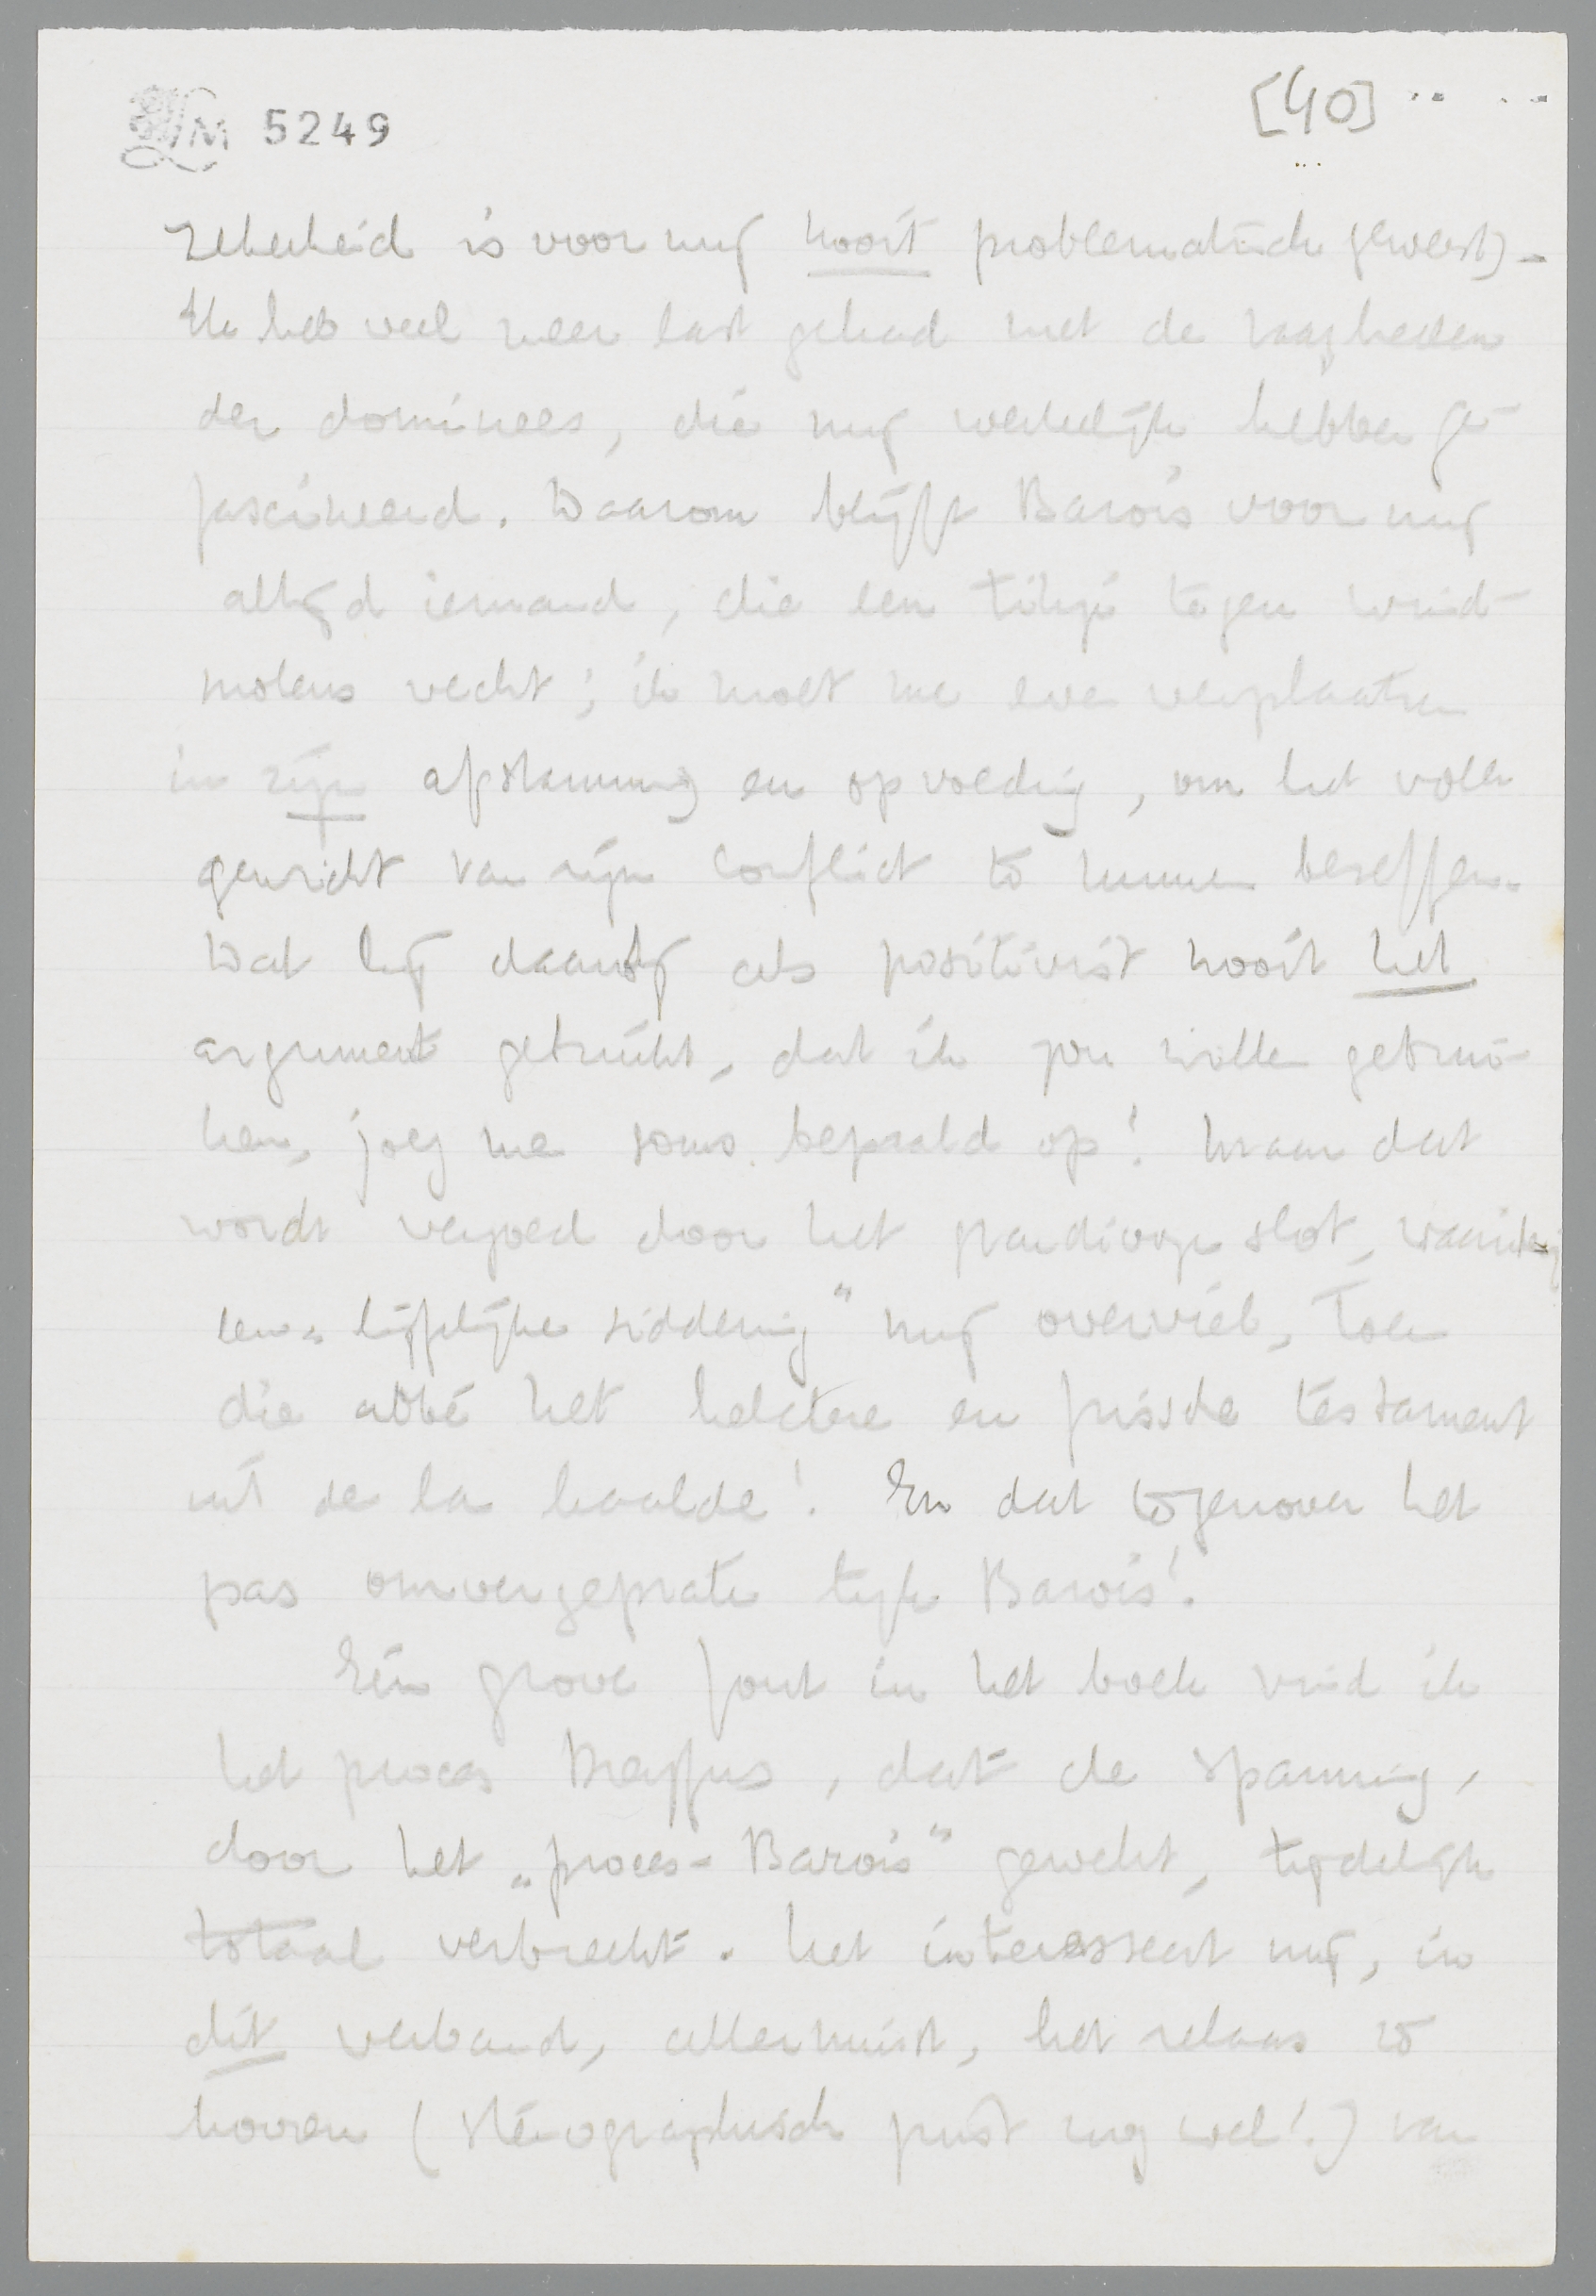 LM 5249
[40]
zekerheid is voor mij nooit problematisch geweest).
Ik heb veel meer last gehad met de vaagheden
der dominees, die mij werkelijk hebben ge-
fascineerd. Waarom blijft Barois voor mij
altijd iemand, die een tikje tegen wind-
molens vecht; ik moet me even verplaatsen
in zijn afstamming en opvoeding, om het volle
gewicht van zijn conflict te kunnen beseffen.
Dat hij daarbij als positivist nooit het
argument gebruikt, dat ik zou willen gebrui-
ken, joeg me soms bepaald op! Maar dat
wordt vergoed door het grandioze slot, waarbij
een „lijfelijke siddering" mij overviel, toen
die abbé het heldere en frissche testament
uit de la haalde! En dat tegenover het
pas omvergeprate lijk Barois!
Eén grove fout in het boek vind ik
het proces Dreyfus, dat de spanning,
door het „proces-Barois" gewekt, tijdelijk
totaal verbreekt. Het interesseert mij, in
dit verband, allerminst, het relaas te
hooren (stenographisch juist nog wel!) van